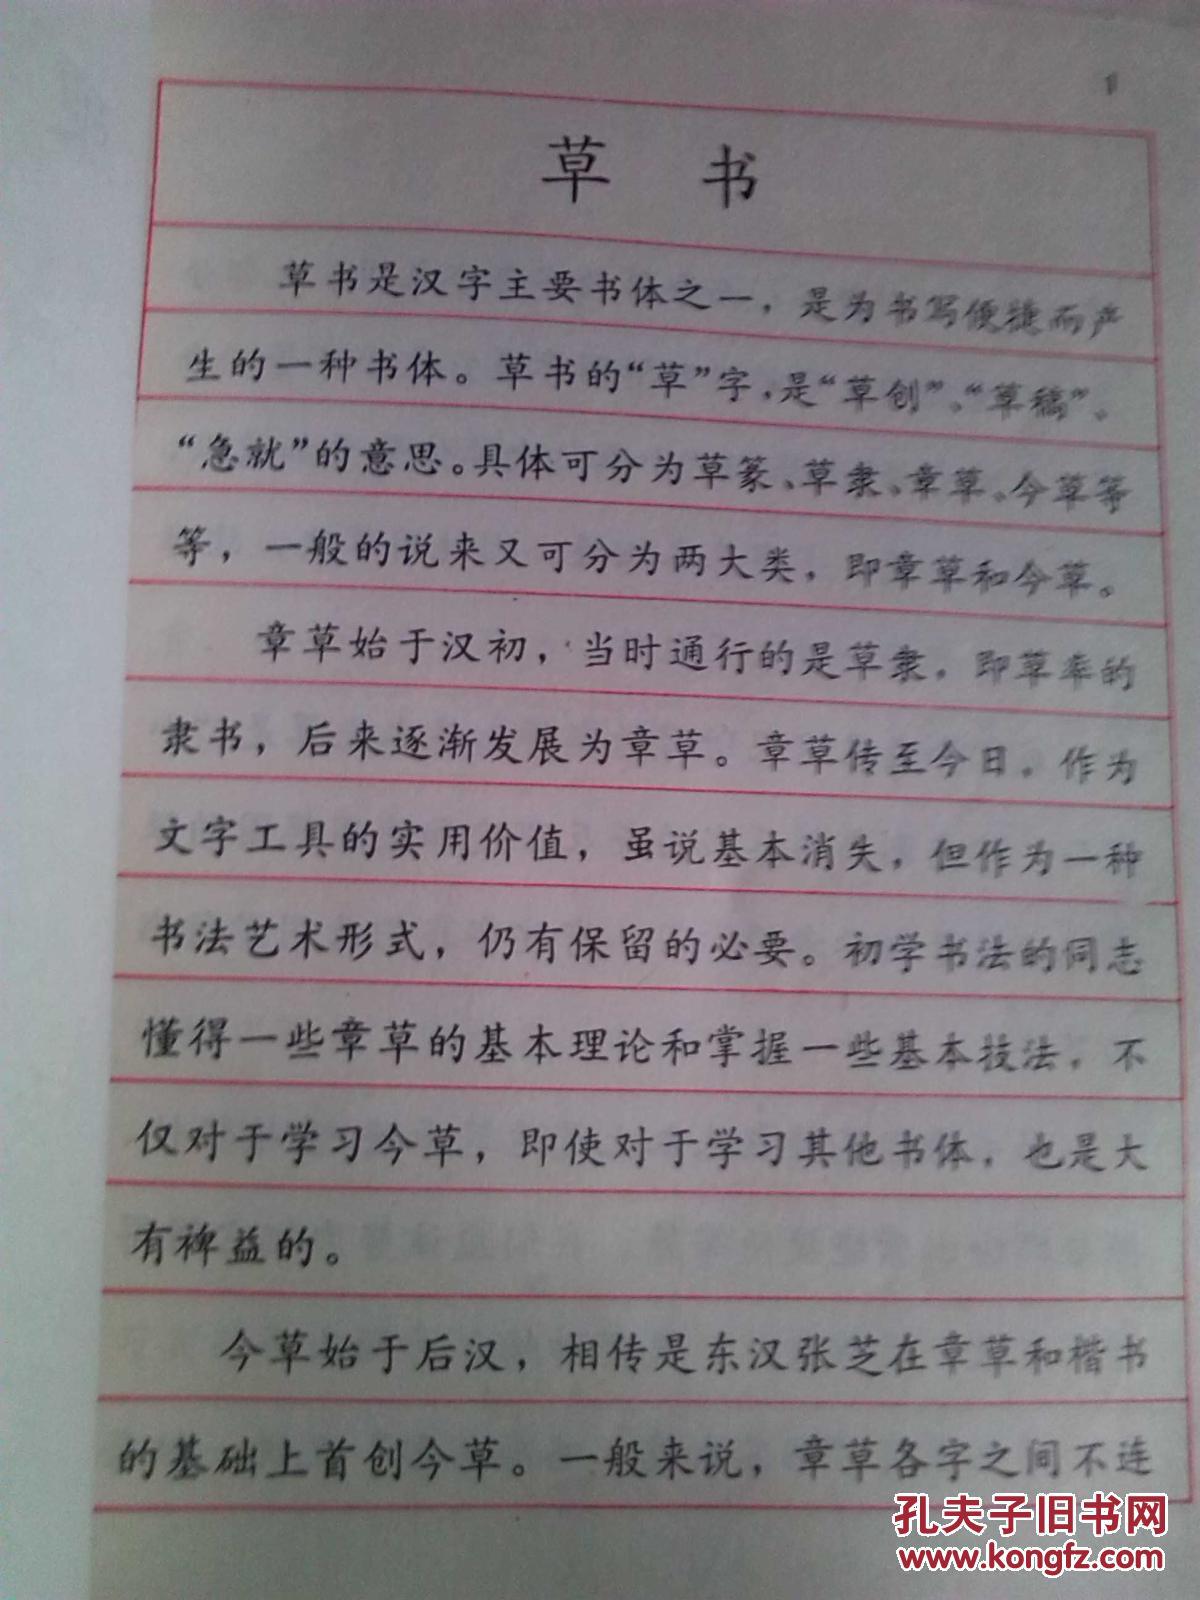 1
草书
草书是汉字主要书体之一，是为书写便捷而产
生的一种书体。草书的“草”字，是“草创”、“草稿”、
“急就”的意思。具体可分为草篆、草隶、章草、今草等
等，一般的说来又可分为两大类，即章草和今草。
章草始于汉初，当时通行的是草隶，即草率的
隶书，后来逐渐发展为章草。章草传至今日，作为
文字工具的实用价值，虽说基本消失，但作为一种
书法艺术形式，仍有保留的必要。初学书法的同志
懂得一些章草的基本理论和掌握一些基本技法，不
仅对于学习今草，即使对于学习其他书体，也是大
有裨益的。
今草始于后汉，相传是东汉张芝在章草和楷书
的基础上首创今草。一般来说，章草各字之间不连
孔夫子旧书网
www.kongfz.com